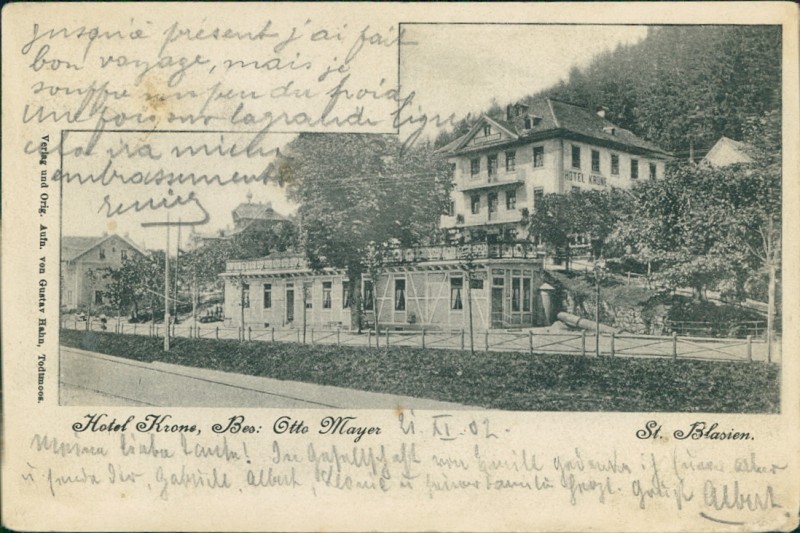 jusqu'à présent j'ai fait
bon voyage, mais je
souffre un peu du froid
Une fois sur la grande ligne
cela ira mieux
embrassements
HOTEL KRONE
Verlag und Orig. Aufn. von Gustav Hahn, Todtmoos.
Hotel Krone, Bes: Otto Mayer
21. XI. 02.
St. Blasien.
Meine liebe Tante! In Gesellschaft von Emill gedenke ich
u sende Dir, Gabriele, Albert, u herzl. Grüße
Albert